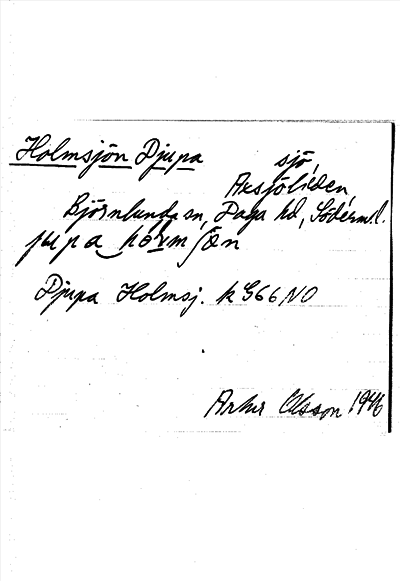 Holmsjön Djupa sjö,
Axsjöliden,
Björnlunda sn, Daga hd, Söderml.
jupa hormſæn
Djupa Holmsj. k G66 NO
Artur Olsson 1946